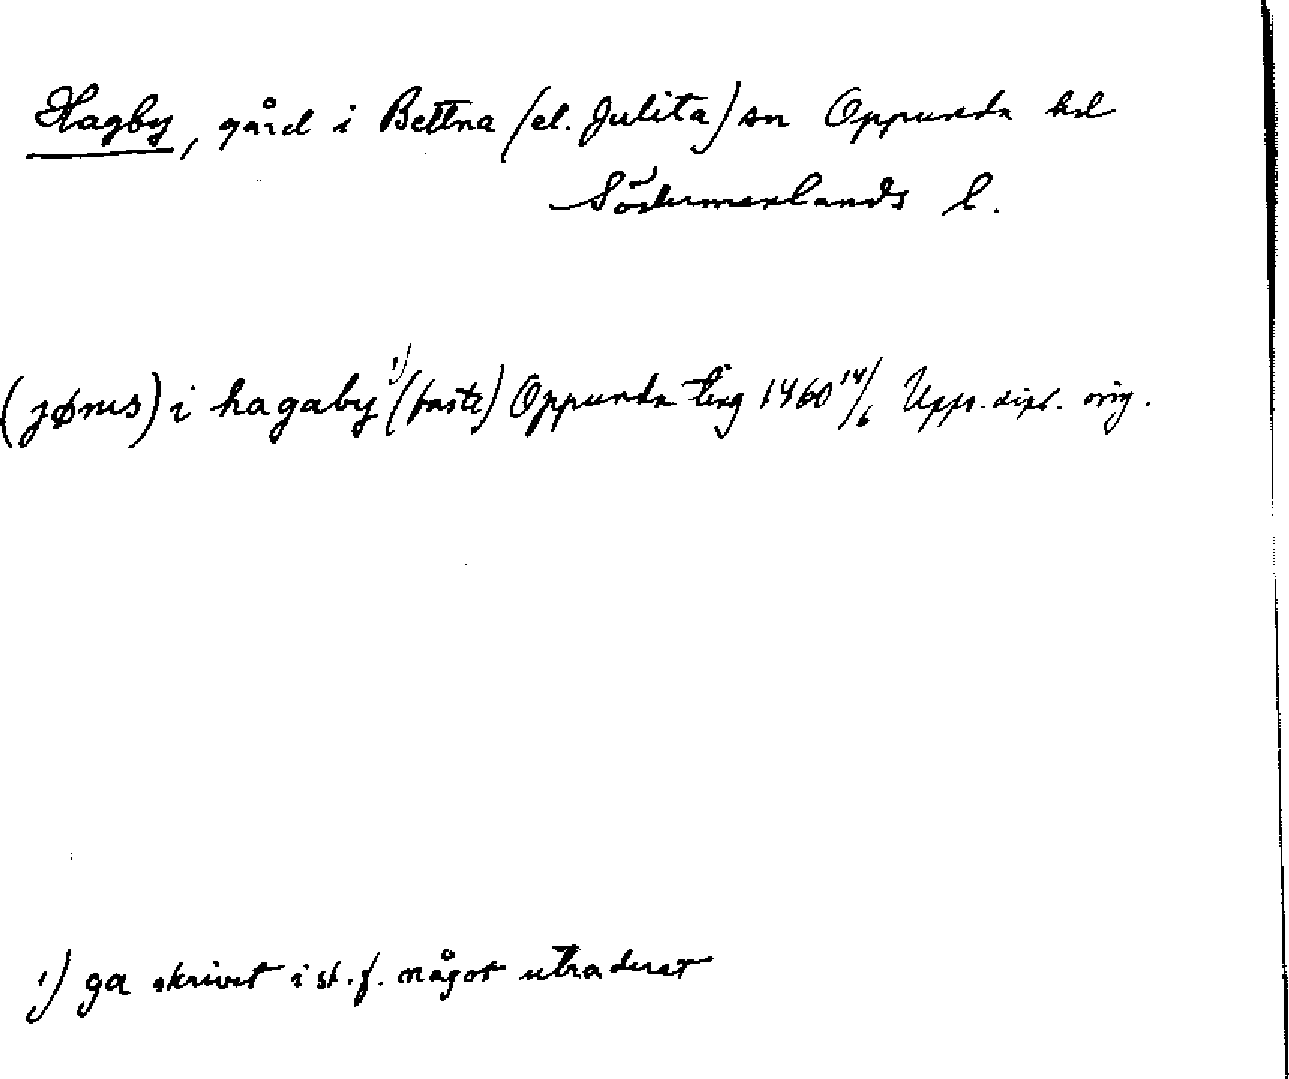 Hagby, gård i Bettna (el. Julita) sn Oppunda hd
Södermanlands l.
(jøns) i hagaby ¹⁾ (faste) Oppunda ting 1460 14/6 Upps. dipl. orig.
¹⁾ ga skrivet i st. f. något utraderat